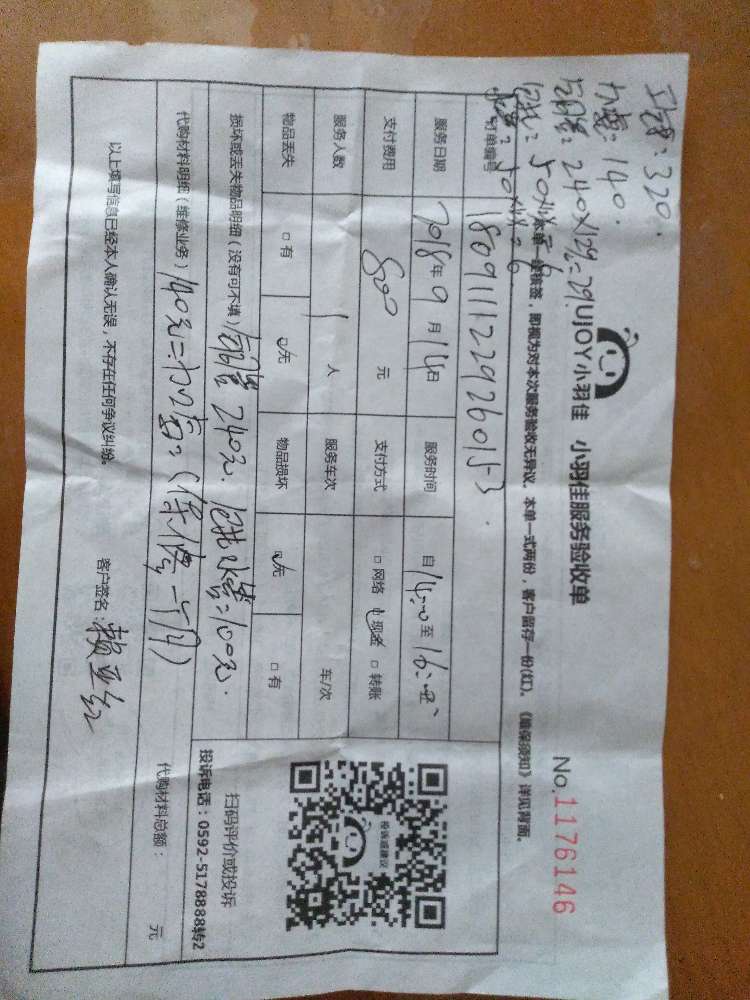 工费：320.
140.
240×12%=29.
50×4%=6
50×4%=6
UJOY小羽佳 小羽佳服务验收单
No.1176146
本单一经核签，即视为对本次服务验收无异议。本单一式两份，客户留存一份(红)。《维保须知》详见背面。
订单编号 180911122926015-3.
服务日期 2018年9月14日 服务时间 自14:00至16:
支付费用 800元 支付方式 □网络 现金 □转账
服务人数 1人 服务车次 车/次
物品丢失 □有 无 物品损坏 无 □有
损坏或丢失物品明细（没有可不填） 240元. 100元.
代购材料明细（维修业务） 140元= 代购材料总额： 元
以上填写信息已经本人确认无误，不存在任何争议纠纷。
客户签名：赖亚红
投诉或建议
扫码评价或投诉
投诉电话：0592-5178888转2